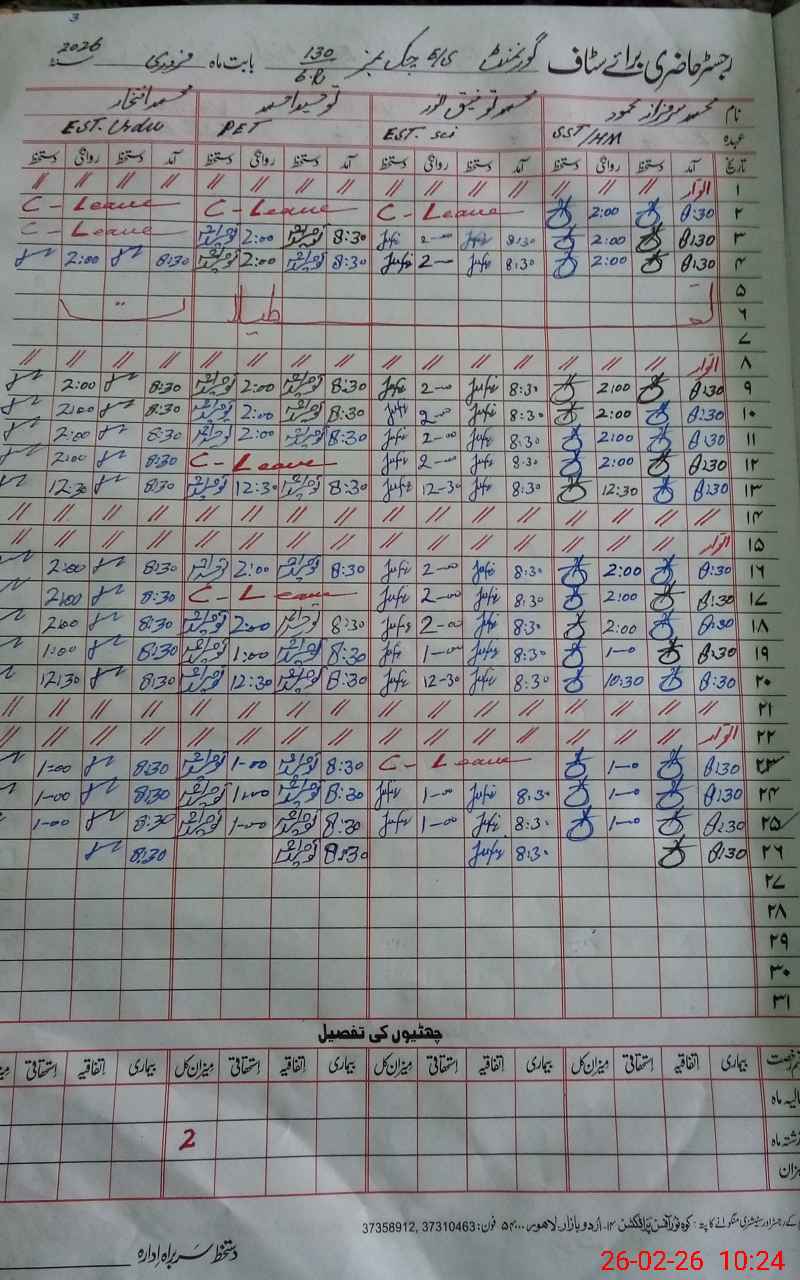 3
رجسٹر حاضری برائے سٹاف گورنمنٹ E/S چک نمبر 130/6.R بابت ماہ فروری سنہ 2026
نام محمد سرفراز محمود محمد توفیق نور توحید احمد محمد افتخار
عہدہ SST/HM EST. Sci PET EST. Urdu
تاریخ آمد دستخط روانگی دستخط آمد دستخط روانگی دستخط آمد دستخط روانگی دستخط آمد دستخط روانگی دستخط
۱ اتوار // // // // // // // // // // // // // // //
۲ 8:30 2:00 C-Leave C-Leave C-Leave
۳ 8:30 2:00 8:30 2-00 8:30 2:00 C-Leave
۴ 8:30 2:00 8:30 2-00 8:30 2:00 8:30 2:00
۵
۶ تعطیلات
۷
۸ اتوار // // // // // // // // // // // // // // //
۹ 8:30 2:00 8:30 2-00 8:30 2:00 8:30 2:00
۱۰ 8:30 2:00 8:30 2-00 8:30 2:00 8:30 2:00
۱۱ 8:30 2:00 8:30 2-00 8:30 2:00 8:30 2:00
۱۲ 8:30 2:00 8:30 2-00 C-Leave 8:30 2:00
۱۳ 8:30 12:30 8:30 12-30 8:30 12:30 8:30 12:30
۱۴ // // // // // // // // // // // // // // // //
۱۵ اتوار // // // // // // // // // // // // // // //
۱۶ 8:30 2:00 8:30 2-00 8:30 2:00 8:30 2:00
۱۷ 8:30 2:00 8:30 2-00 C-Leave 8:30 2:00
۱۸ 8:30 2:00 8:30 2-00 8:30 2:00 8:30 2:00
۱۹ 8:30 1-0 8:30 1-00 8:30 1:00 8:30 1:00
۲۰ 8:30 10:30 8:30 12-30 8:30 12:30 8:30 12:30
۲۱ // // // // // // // // // // // // // // // //
۲۲ اتوار // // // // // // // // // // // // // // //
۲۳ 8:30 1-0 C-Leave 8:30 1-00 8:30 1:00
۲۴ 8:30 1-0 8:30 1-00 8:30 1:00 8:30 1-00
۲۵ 8:30 1-0 8:30 1-00 8:30 1-00 8:30 1-00
۲۶ 8:30 8:30 8:30 8:30
۲۷
۲۸
۲۹
۳۰
۳۱
چھٹیوں کی تفصیل
رخصت بیماری اتفاقیہ استحقاقی میزان کل بیماری اتفاقیہ استحقاقی میزان کل بیماری اتفاقیہ استحقاقی میزان کل بیماری اتفاقیہ استحقاقی
حالیہ ماہ
گذشتہ ماہ 2
میزان
اردو بازار، لاہور فون: 37310463, 37358912
دستخط سربراہ ادارہ
26-02-26 10:24